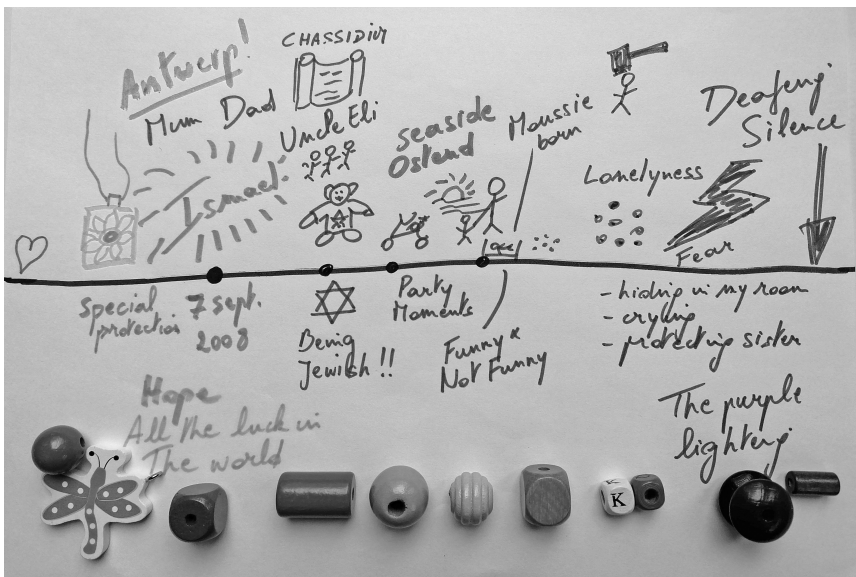 Antwerp!
Mum Dad
Ismael
CHASSIDIM
Uncle Eli
seaside
Ostend
Moussie
born
Lonelyness
Fear
Deafeng
Silence
special
protection
7 sept.
2008
Being
Jewish !!
Party
Moments
Funny &
Not Funny
- hiding in my room
- crying
- protecting sister
Hope
All the luck in
The world
The purple
lighting
K